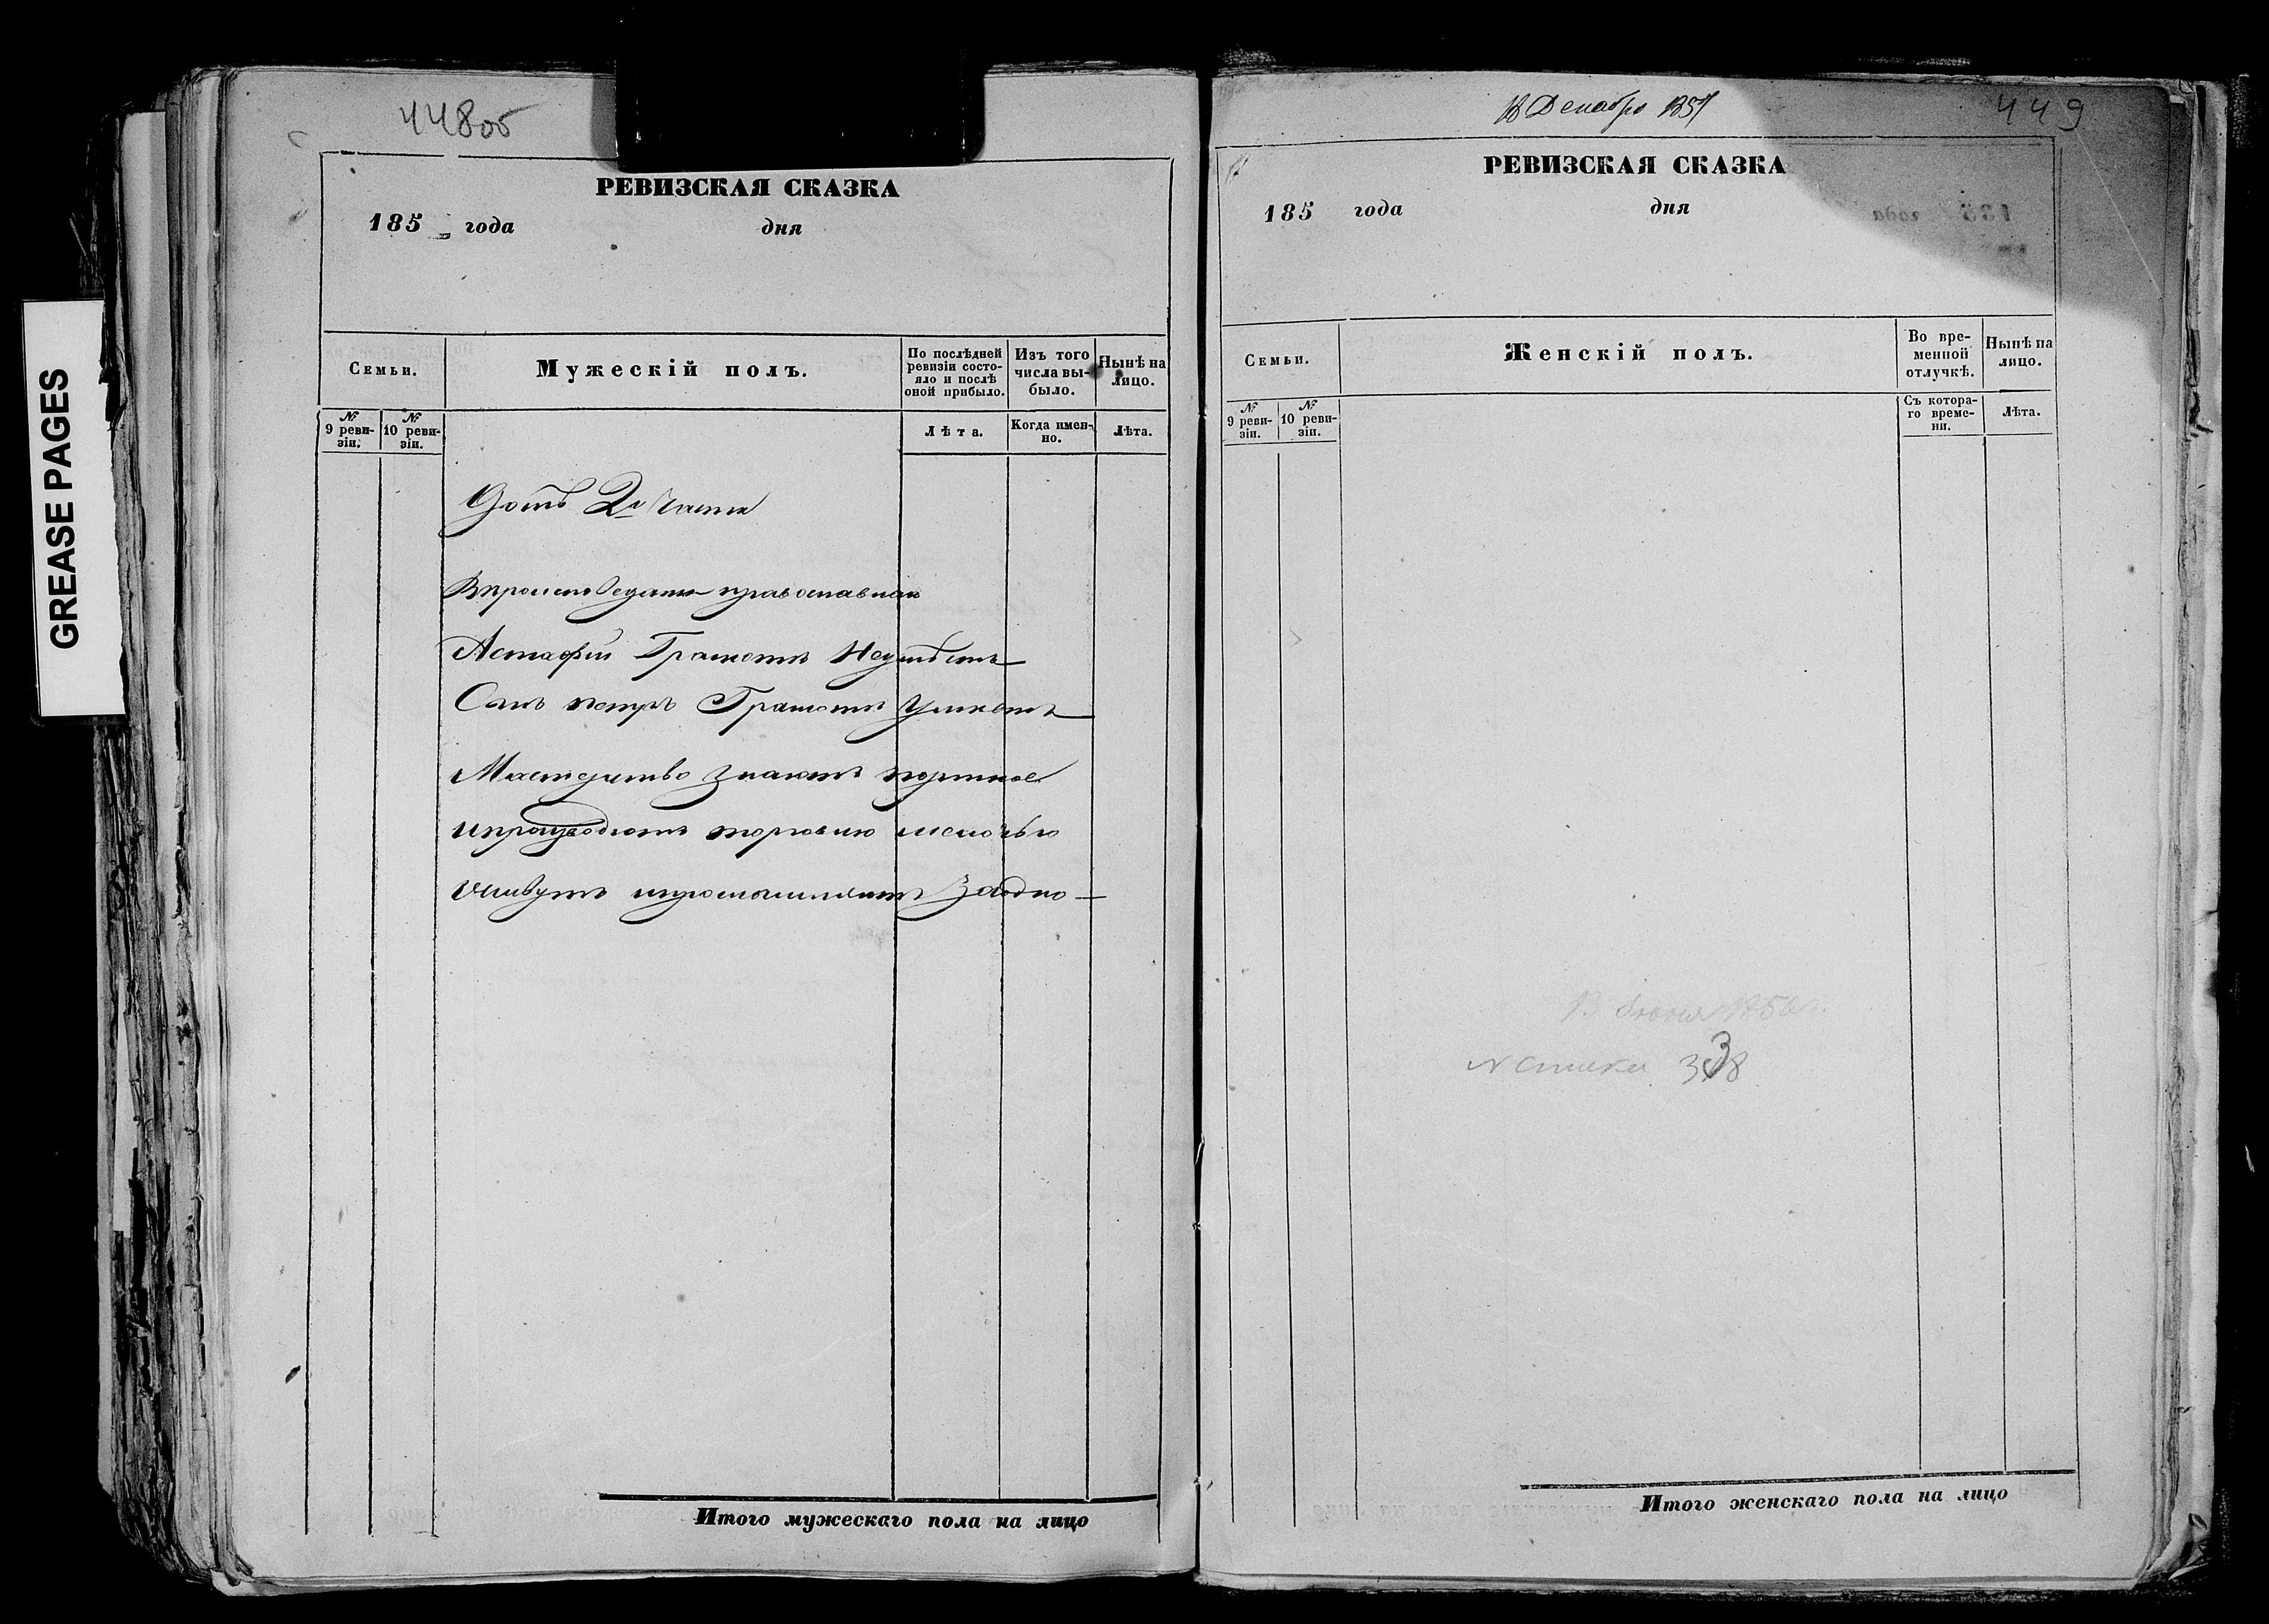 GREASE PAGES
448об
РЕВИЗСКАЯ СКАЗКА
185 года дня
Семьи.
Мужескій полъ.
По послѣдней ревизіи состо-
яло и послѣ оной прибыло.
Изъ того числа вы-
было.
Нынѣ на лицо.
№ 9 реви-
зіи.
№ 10 реви-
зіи.
Лѣта.
Когда имен-
но.
Лѣта.
2й части
православнаго
Астафій Грамотѣ Неумѣетъ
Сынъ петръ Грамотѣ умѣетъ
Мастерство знаютъ портное
ипроизводютъ торговлю мелочью
заодно
Итого мужескаго пола на лицо
18 Декабря 1857
449
РЕВИЗСКАЯ СКАЗКА
185 года дня
Семьи.
Женскій полъ.
Во вре-
менной отлучкѣ.
Нынѣ на лицо.
№ 9 реви-
зіи.
№ 10 реви-
зіи.
Съ котора-
го време-
ни.
Лѣта.
Итого женскаго пола на лицо